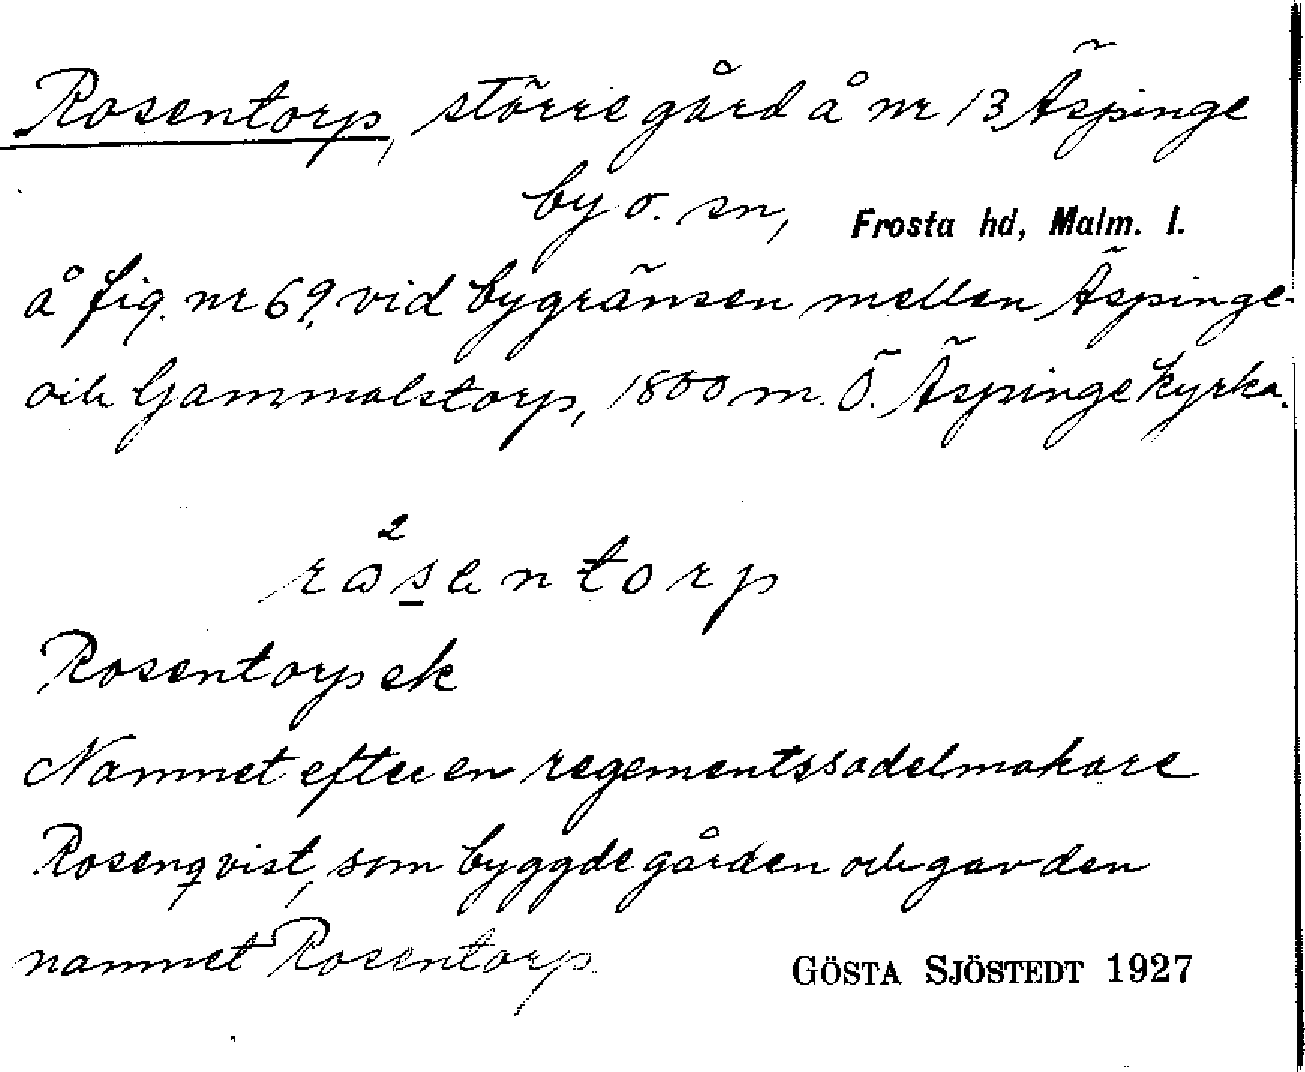 Rosentorp, större gård å nr 13 Äspinge
by o. sn, Frosta hd, Malm. l.
å fig. nr 69, vid bygränsen mellan Äspinge
och Gammalstorp, 1800 m. Ö. Äspinge kyrka.
2
råsentorp
Rosentorp ek
Namnet efter en regementssadelmakare
Rosenqvist, som byggde gården och gav den
namnet Rosentorp.
GÖSTA SJÖSTEDT 1927